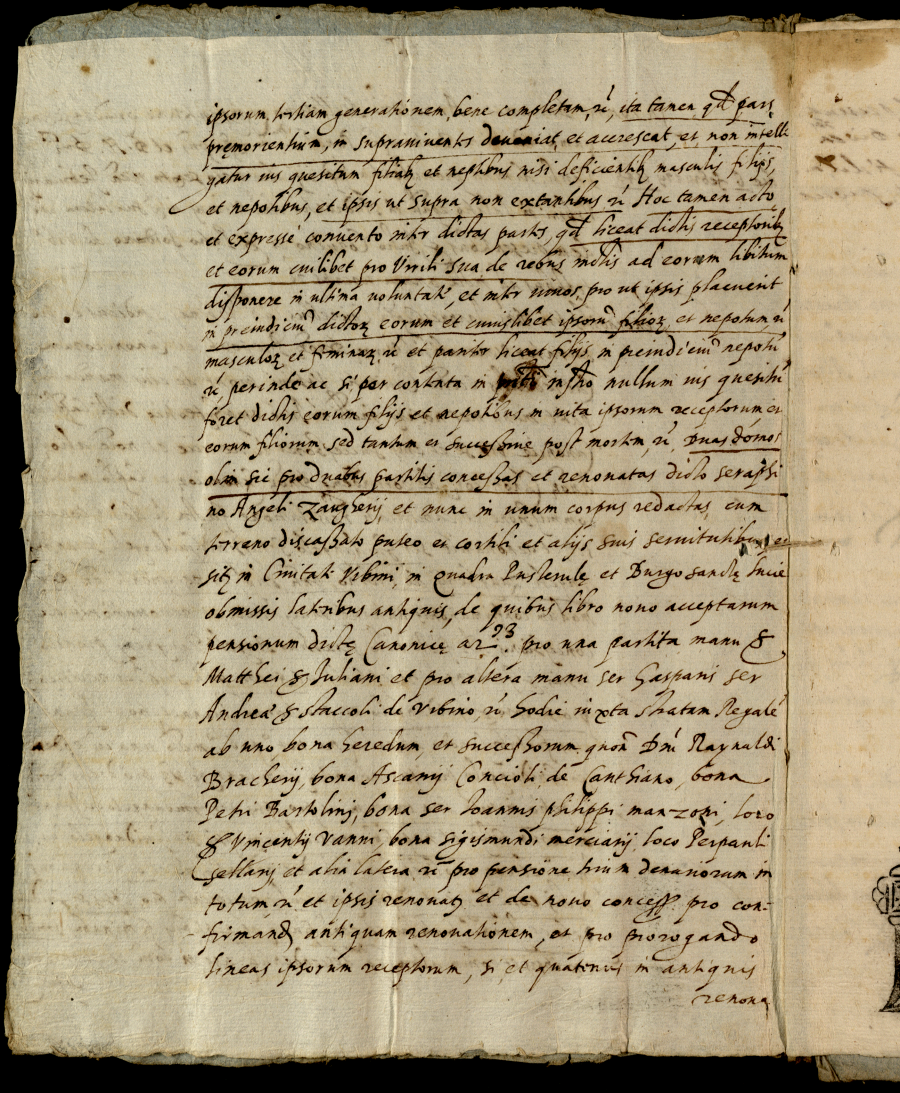 ipsorum tertiam generationem bene completam, rñ, ita tamen qđ pars
premorientium, in supraviventes deveniat, et accrescat, et non intelli
gatur ius quesitum filiabz et neptibus nisi deficientibz masculis filijs,
et nepotibus, et ipsis ut supra non extantibus rñ Hoc tamen acto
et expressè convento inter dictas partes, qđ liceat dictis receptoribz
et eorum cuilibet pro Virili sua de rebus inditis ad eorum libitum
disponere in ultima voluntate, et inter vivos, pro ut ipsis placuerit
in preiudiciũ dictoꝝ eorum et cuiuslibet ipsorũ filioꝝ, et nepotum, rñ
masculoꝝ et feminaꝝ rñ et pariter liceat filijs, in preiudiciũ nepotũ
rñ, perinde ac si per contenta in instrõ nullum ius quesitũ
foret dictis eorum filijs et nepotibus in vita ipsorum receptorum et
eorum filiorum, sed tantum et successive post mortem, rñ, Duas domos
olim sic pro duabus partitis concessas et renovatas dicto seraphi
no Angeli Zaugherij, et nunc in unum corpus redactas, cum
terreno discassato puteo et cortili et alijs suis servitutibus, et
sitę in Civitate Urbini, in Quadra Pusterulę et Burgo sanctę Lucię
obmissis lateribus antiquis, de quibus libro nono acceptarum
pensionum dictę Canonicę ar 93. pro una partita manu S.
Matthei S. Iuliani et pro altera manu ser Gasparis ser
Andreæ S. staccoli de Urbino, rñ hodie iuxta stratam Regalẽ
ab uno bona heredum, et successorum quoñ Dñi Raynaldi
Bracherij, bona Ascanij Concioli de Canthiano, bona
Petri Bartolinj, bona ser Ioannis philippi manzoni, loco
S. Vincentij Vanni, bona sigismundi merciarij, loco Perpauli
sellarij, et alia latera rñ pro pensione trium denariorum in
totum, rñ et ipsis renovatę et de novo concess. pro con:
firmandę antiquam renovationem, et pro prorogando
lineas ipsorum receptorum, si et quatenus in antiquis
renova